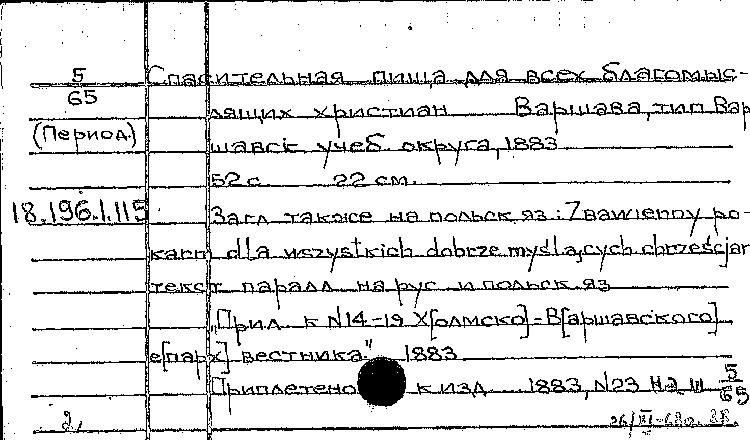 5/65 Спасительная пища для всех благомыс-
лящих христиан Варшава, тип Вар
(Период.) шавск учеб. округа, 1883
52 с. 22 см.
18.196.1.115 Загл также на польск яз: Zbawienny po-
karm dla wszystkich dobrze myślących chrześcjan
текст паралл на рус и польск яз
"Прил к N14-19 Х[олмско]-В[аршавского]
е[парх] вестника" 1883
Приплетено к изд 1883, N23 На ш 5/65
2.